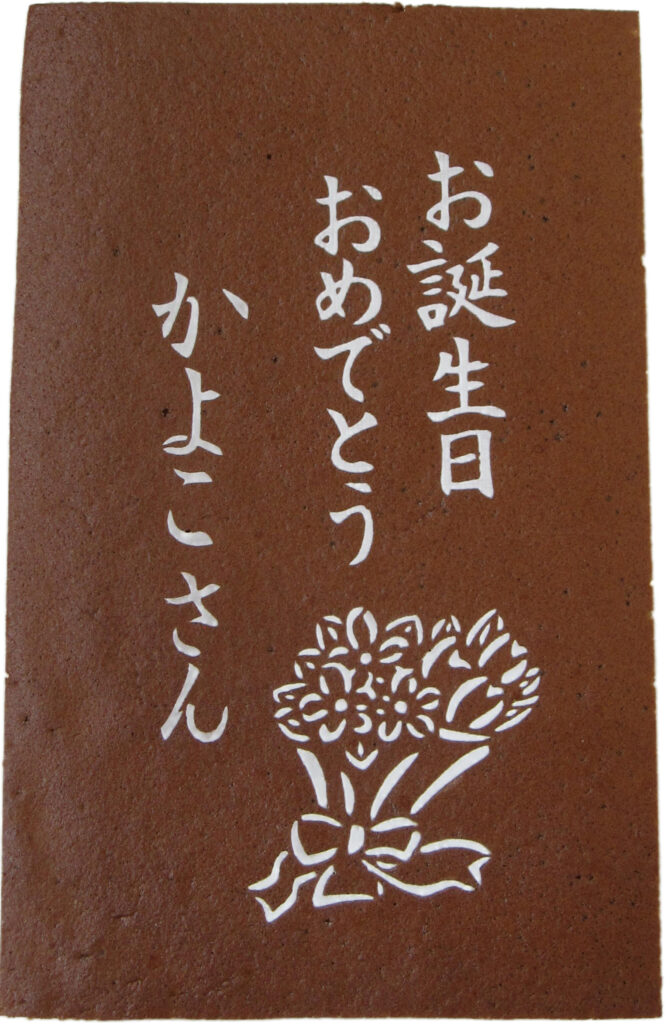 お誕生日
おめでとう
かよこさん